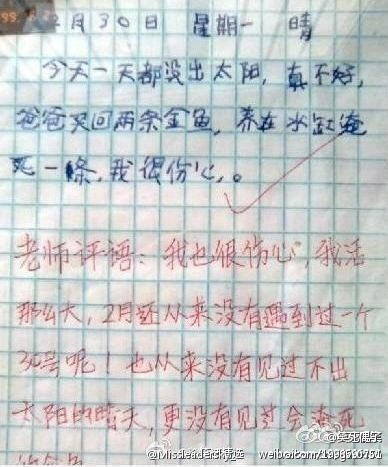 2月30日 星期一 晴
今天一天都没出太阳，真不好，
爸爸买回两条金鱼，养在水缸淹
死一條，我很伤心。
老师评语：我也很伤心，我活
那么大，2月还从来没有遇到过一个
30号呢！也从来没有见过不出
太阳的晴天，更没有见过会淹死
的金鱼
@笑死偶了
weibo.com/